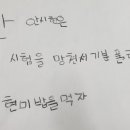 안시험은
시험을 망쳐서 기분 풀
현미밥을 먹자